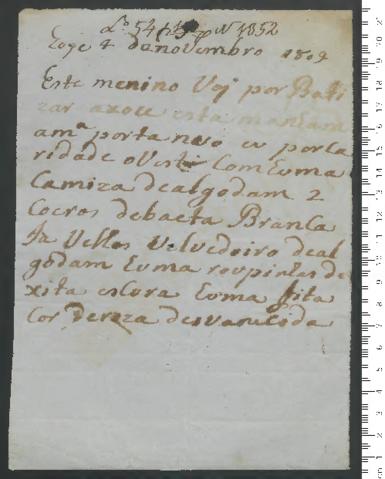 Lº 54 f 157 Nº 1852
Eoge 4 de novembro 1809
Este menino Voj por Bati
zar axoce esta manham
amª porta nuo eu por Ca
ridade o Vesti Com Euma
Camiza de algodam 2
Coeros debaeta Branca
Ja Velhos Volvedoiro de al
godam Euma roupinhas de
xita escura Euma fita
Cor de roza desvanecida